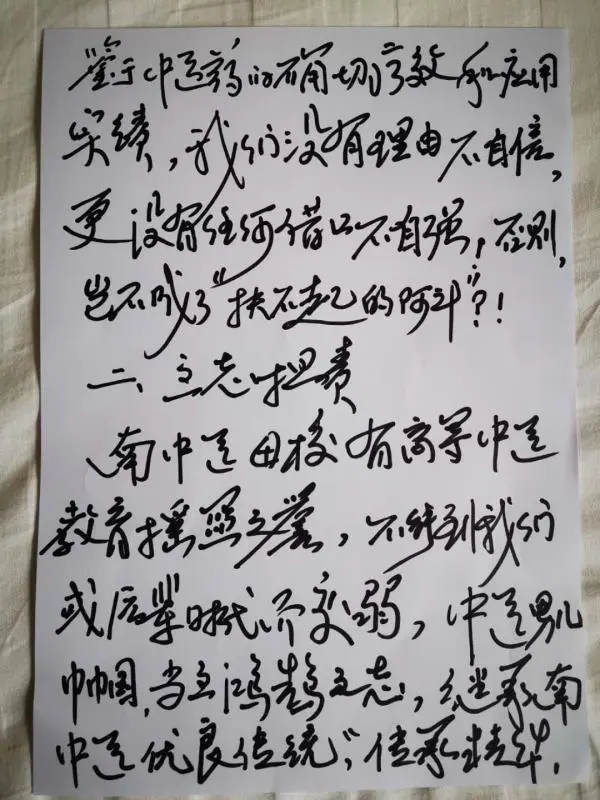 鉴于中医药的确切疗效和应用
实绩，我们没有理由不自信，
更没有任何借口不自强，否则，
岂不成了“扶不起的阿斗”？！
二、立志担责
南中医母校有高等中医
教育摇篮之誉，不能到我们
或后辈时代而变弱，中医男儿
巾帼，当立鸿鹄之志，继承南
中医优良传统，传承精华，